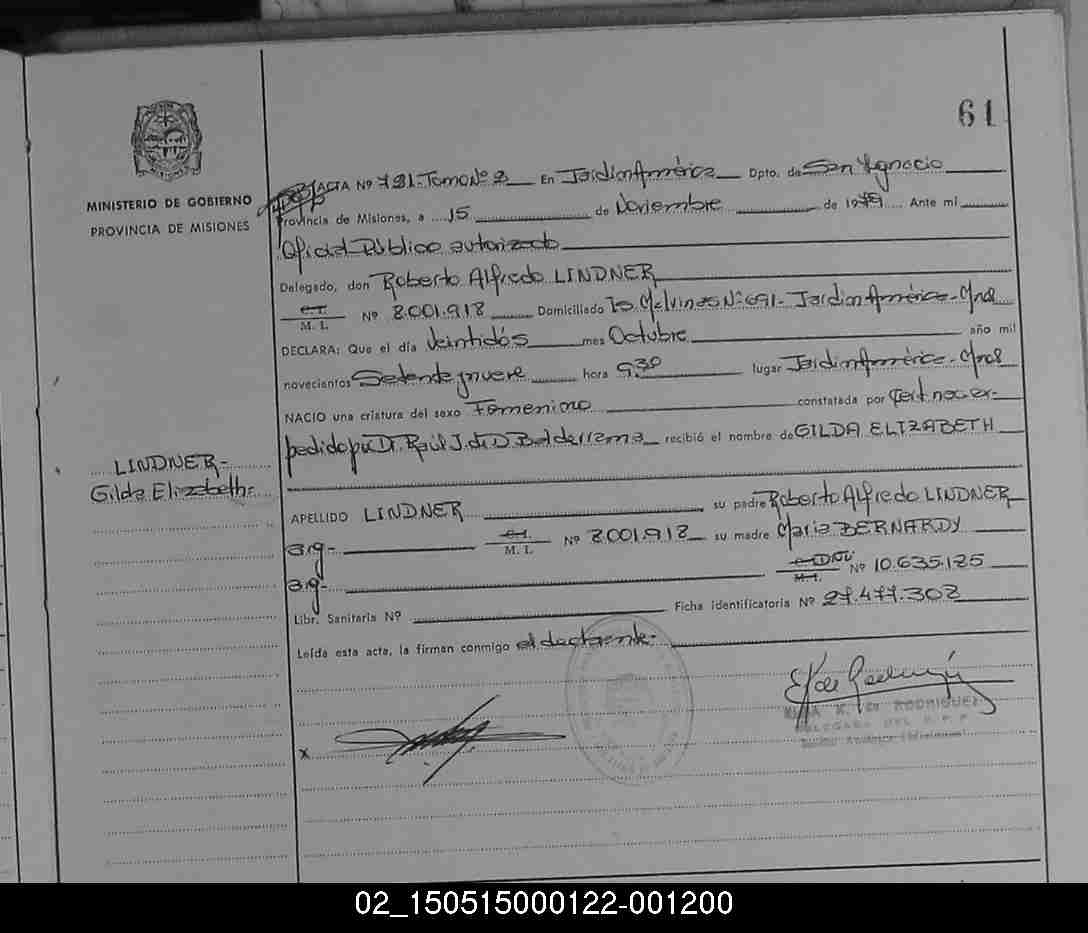 61
MINISTERIO DE GOBIERNO
PROVINCIA DE MISIONES
ACTA Nº 781-Tomo Nº 2 En Jardín América Dpto. de San Ignacio
Provincia de Misiones, a 15 de Noviembre de 1979 Ante mi
Oficial Público autorizado
Delegado, don Roberto Alfredo LINDNER
C.I.
M. I. Nº 8.001.918 Domiciliado Is Malvinas Nº 691- Jardín América-Mnes
DECLARA: Que el día Veintidós mes Octubre año mil
novecientos Setenta y nueve hora 9,30 lugar Jardín América-Mnes
NACIO una criatura del sexo Femenino constatada por Cert. nac. ex-
pedido p/ Dr. Raúl J. de D. Balderrama recibió el nombre de GILDA ELIZABETH
LINDNER-
Gilda Elizabeth-
APELLIDO LINDNER su padre Roberto Alfredo LINDNER
arg-
C.I.
M. I. Nº 8.001.918 su madre María BERNARDY
arg-
M. I. Nº 10.635.125
Libr. Sanitaria Nº Ficha identificatoria Nº 27.477.302
Leída esta acta, la firman conmigo el declarante-
x
DE RODRIGUEZ
DELEGADA DEL R.P.P.
02_150515000122-001200